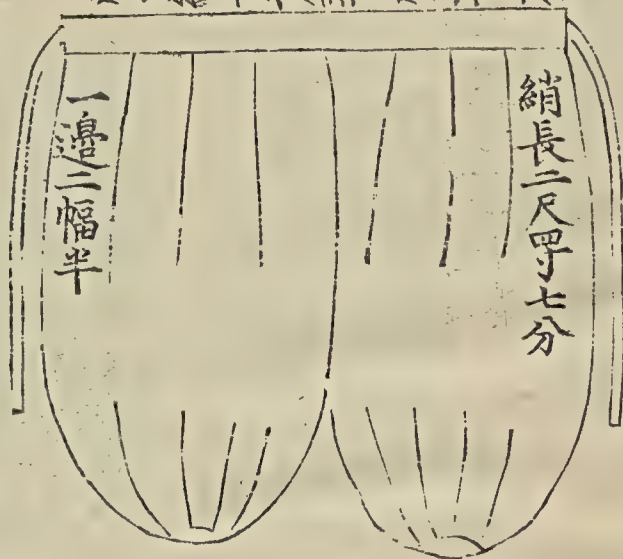 綃長二尺四寸七分
一邊二幅半